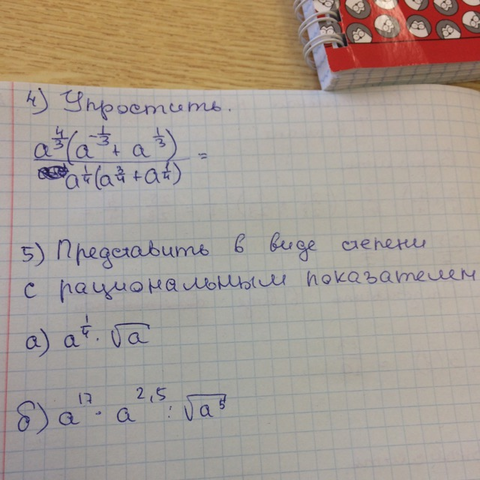 4) Упростить.
a^{4/3}(a^{-1/3} + a^{1/3}) / a^{1/4}(a^{3/4} + a^{1/4}) =
5) Представить в виде степени
с рациональным показателем
а) a^{1/4} · √a
б) a^{17} · a^{2,5} : √a^5